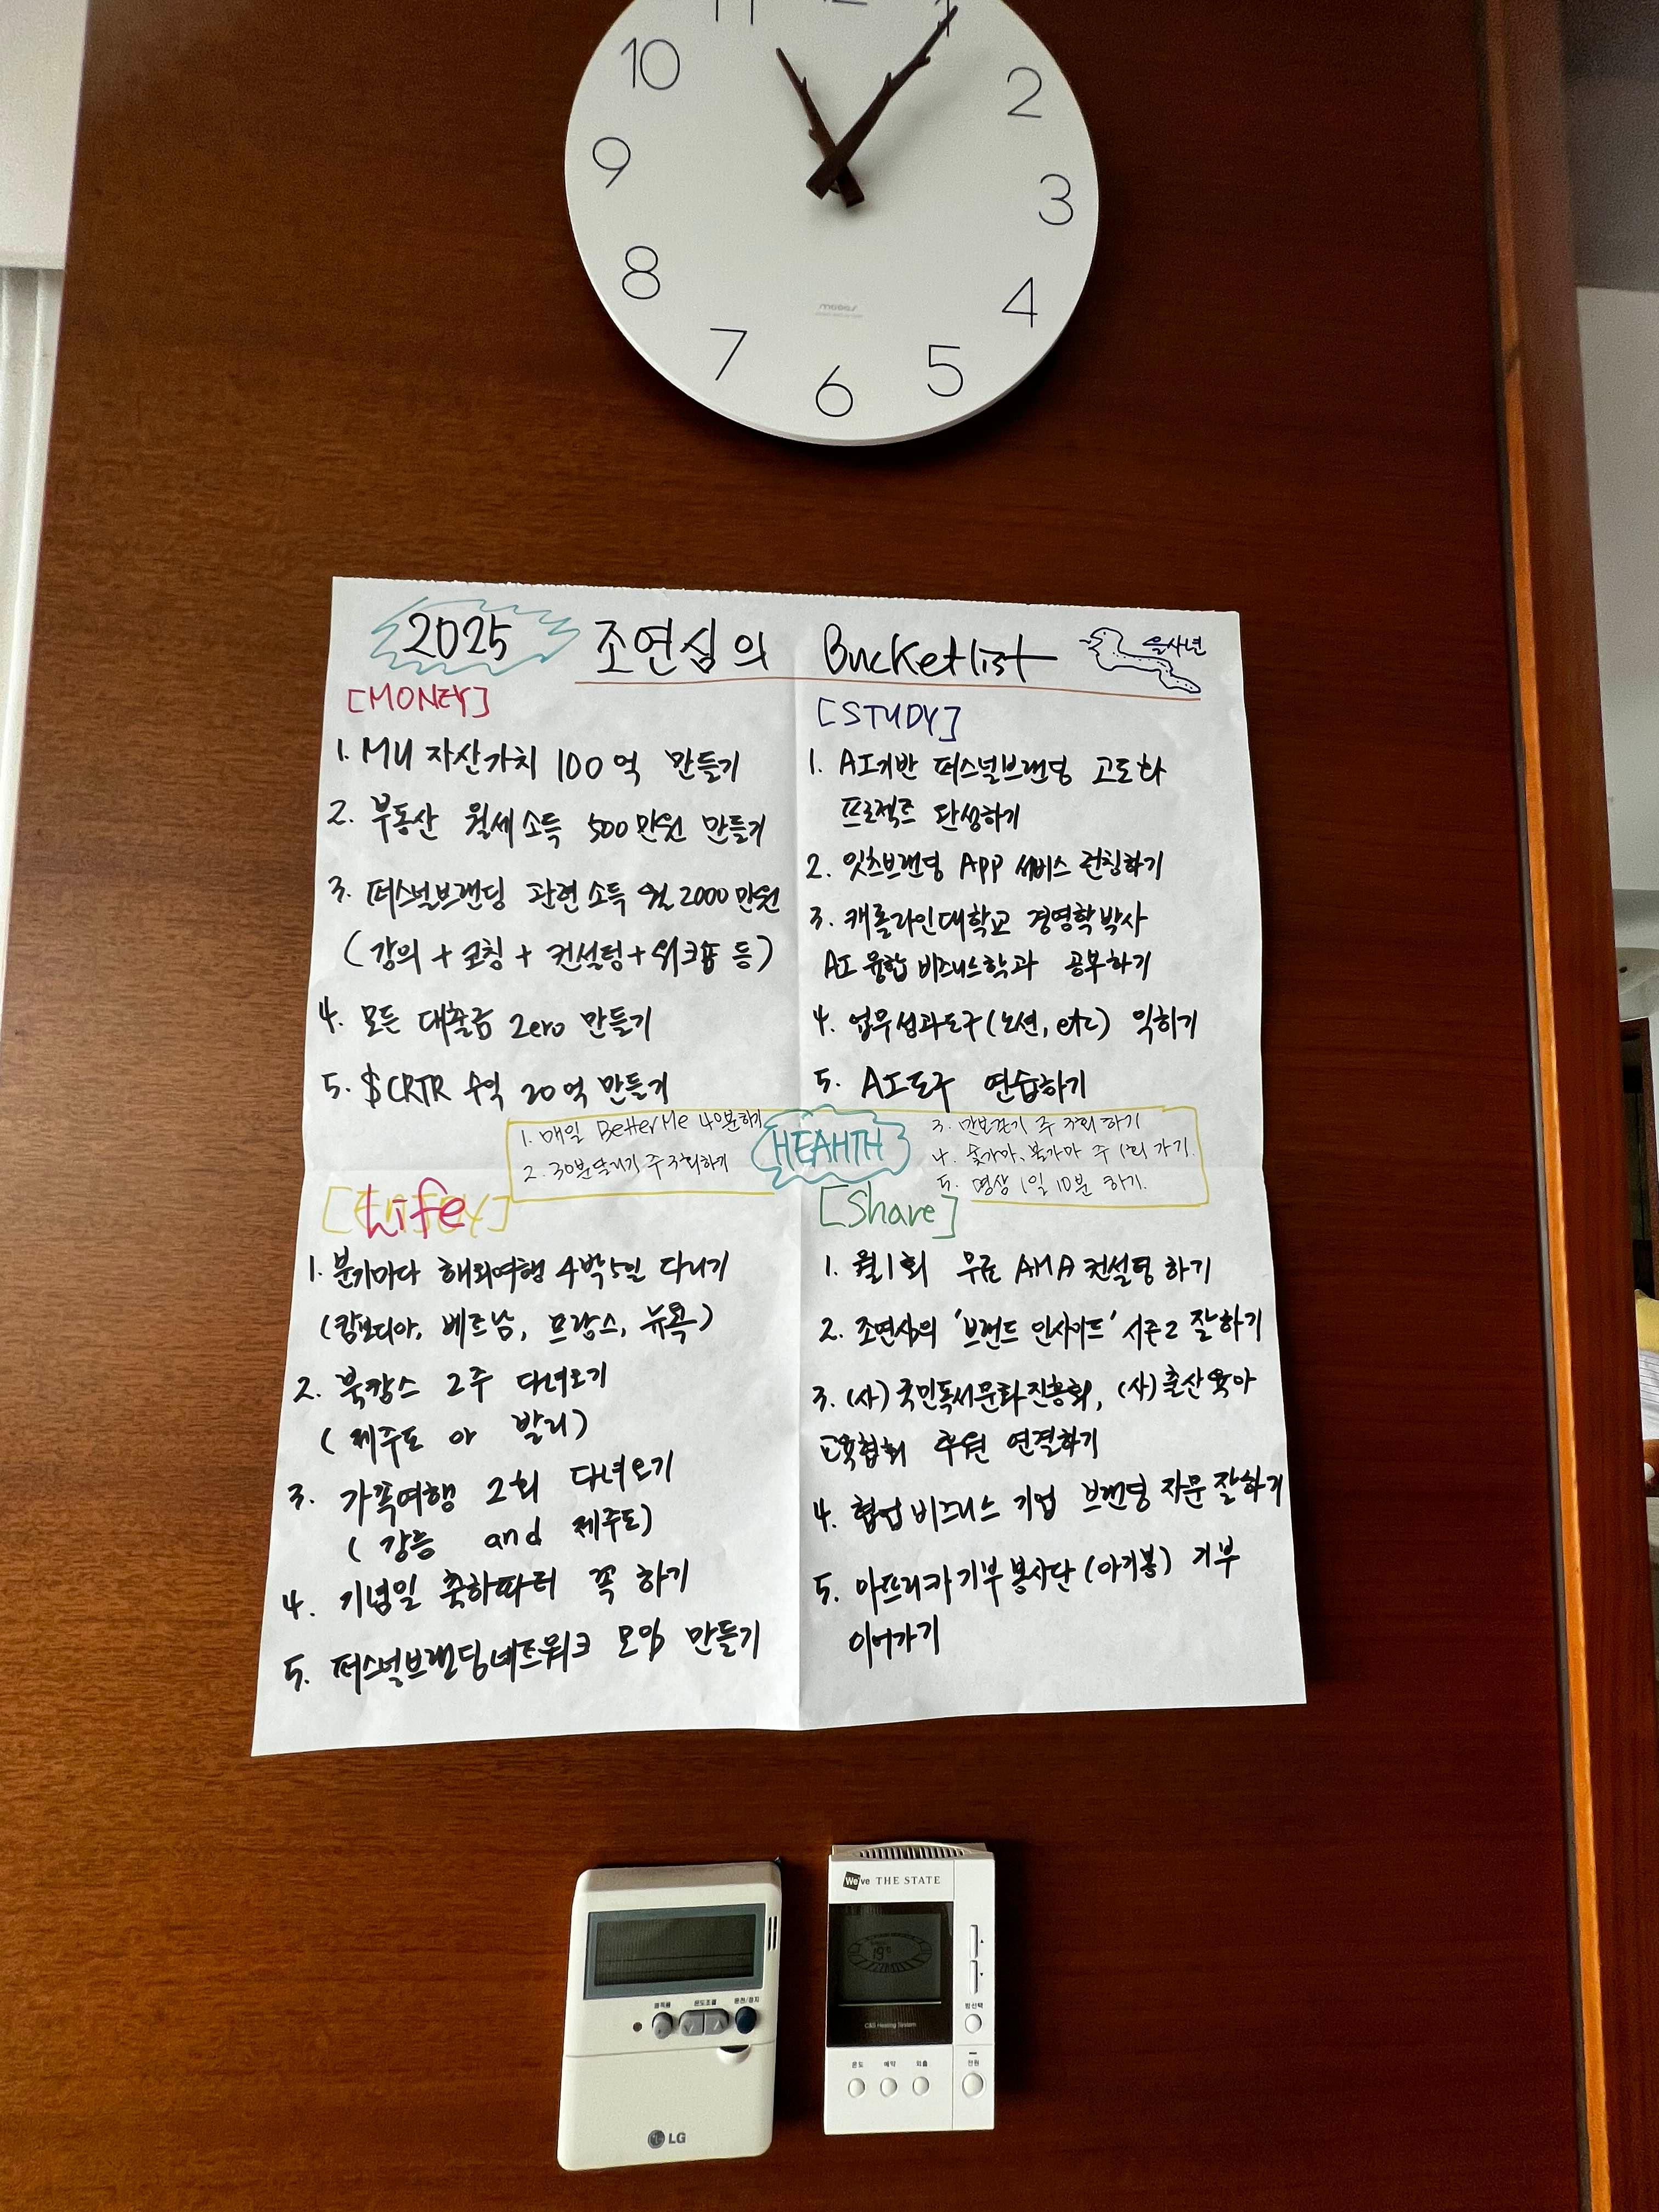 11 12 1
10 2
9 3
8 4
7 5
6
2025 조연심의 Bucketlist 을사년
[MONEY]
1. MU 자산가치 100억 만들기
2. 부동산 월세소득 500만원 만들기
3. 퍼스널브랜딩 관련소득 월 2000만원
(강의 + 코칭 + 컨설팅 + 워크숍 등)
4. 모든 대출금 Zero 만들기
5. $CRTR 수익 20억 만들기
[STUDY]
1. AI기반 퍼스널브랜딩 고도화
프로젝트 달성하기
2. 잇츠브랜딩 APP 서비스 런칭하기
3. 캐롤라인대학교 경영학박사
AI 융합 비즈니스학과 공부하기
4. 업무성과도구(노션, etc) 익히기
5. AI도구 연습하기
HEAHTH
1. 매일 BetterMe 40분하기
2. 30분달리기 주3회하기
3. 만보걷기 주 3회 하기
4. 숯가마, 불가마 주 1회 가기.
5. 명상 1일 10분 하기.
[Life]
1. 분기마다 해외여행 4박5일 다니기
(캄보디아, 베트남, 프랑스, 뉴욕)
2. 북캉스 2주 다녀오기
(제주도 or 발리)
3. 가족여행 2회 다녀오기
(강릉 and 제주도)
4. 기념일 축하파티 꼭 하기
5. 퍼스널브랜딩네트워크 모임 만들기
[Share]
1. 월1회 무료 AMA 컨설팅 하기
2. 조연심의 '브랜드 인사이드' 시즌2 잘하기
3. (사)국민독서문화진흥회, (사)출산육아
교육협회 후원 연결하기
4. 협업 비즈니스 기업 브랜딩 자문 잘하기
5. 아프리카기부봉사단(아기봉) 기부
이어가기
온도조절 운전/정지
LG
We've THE STATE
19
C&S Heating System
방선택
온도 예약 외출 전원